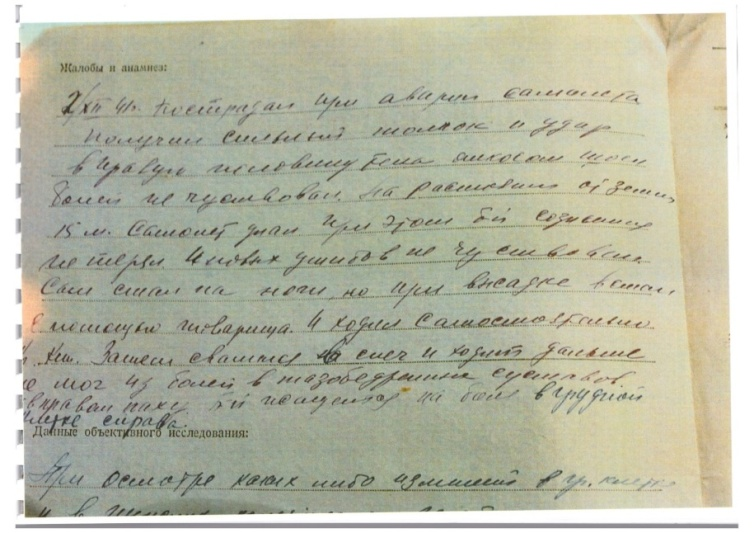 Жалобы и анамнез:
2/XII 41г. Пострадал при аварии самолета
получил сильный толчок и удар
в правую половину тела
болей не чуствовал. На расстоянии от земли
15 м. Самолет упал при этом б-й сознание
не терял и новых ушибов не чуствовал.
Сам стал на ноги, но при высадке
с помощью товарища. И ходил самостоятельно
Км. Затем свалился на снег и ходить дальше
не мог из болей в тазобедренных суставов
в правом паху. б-й на боли в грудной
клетке справа.
Данные объективного исследования:
При осмотре каких либо изменений в гр. клетке
и в